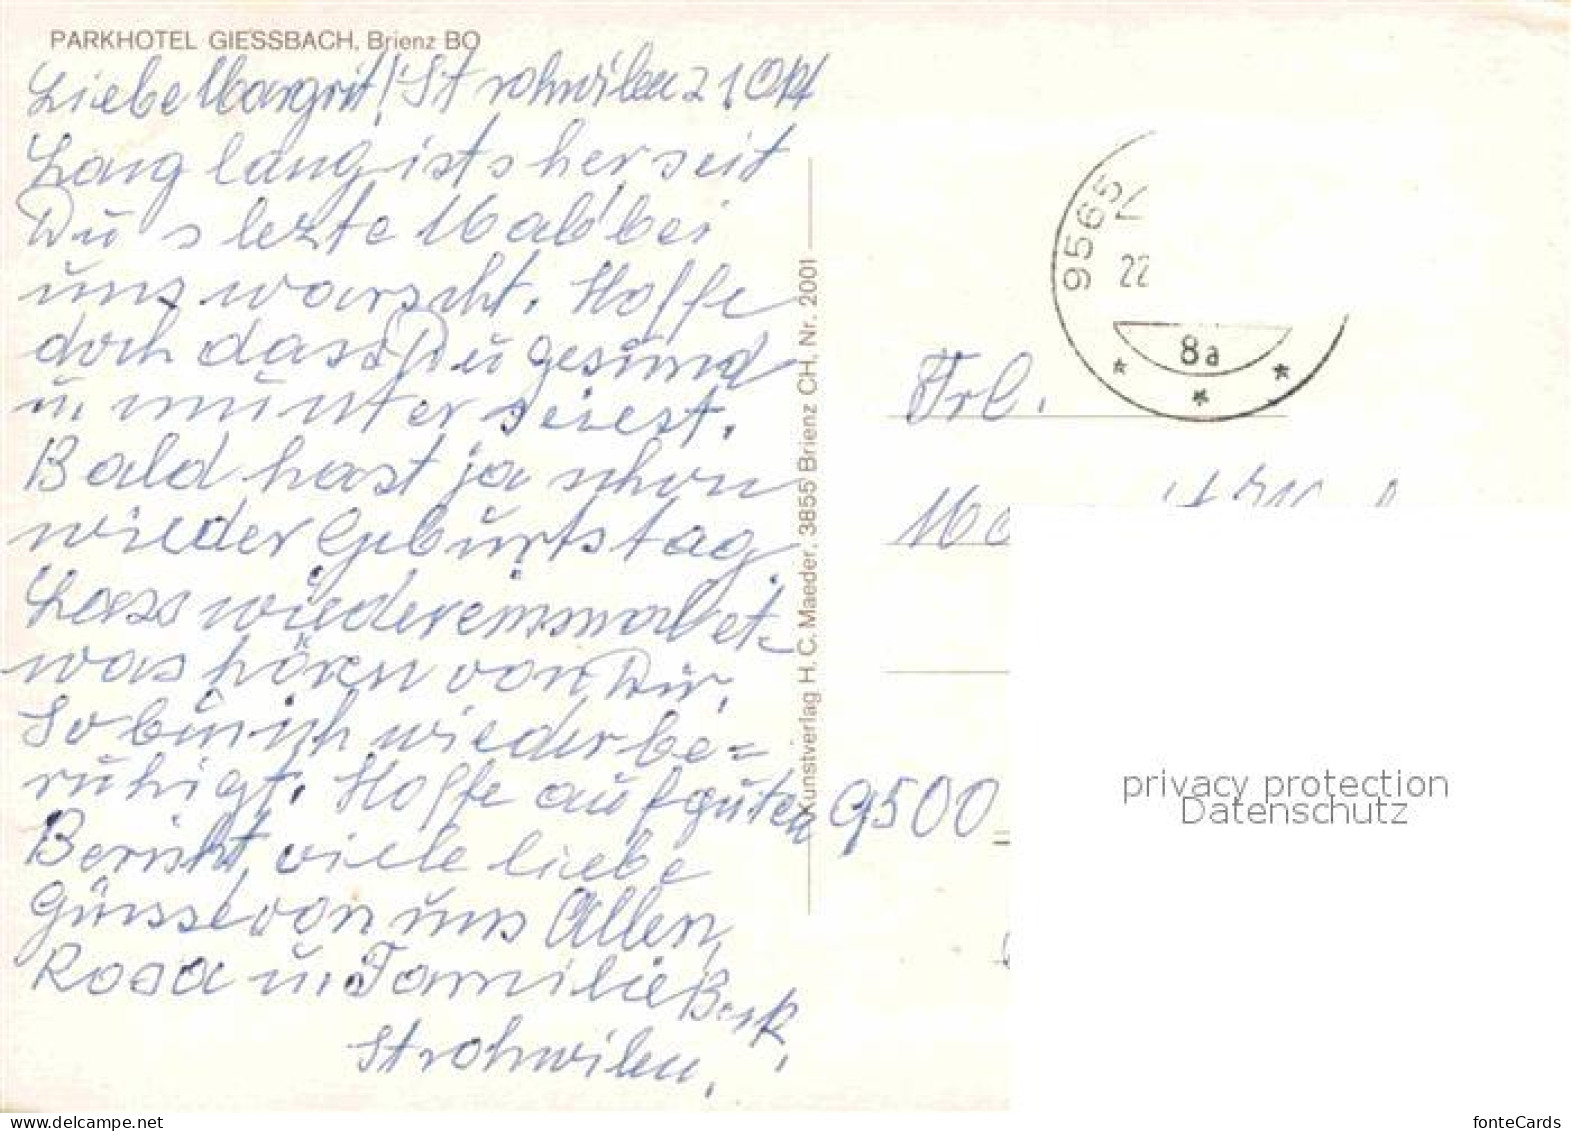 PARKHOTEL GIESSBACH, Brienz BO
Liebe Margrit! Strohwilen 21 Okt
Lang lang ists her seit
Du s lezte Mal bei
uns warscht. Hoffe
doch dass Du gesund
u munter seiest.
Bald hast ja schon
wieder Geburtstag.
Lass wiedereinmal et-
was hören von Dir.
So bin ich wieder be=
ruhigt. Hoffe auf guten
Bericht, viele liebe
Grüsse von uns Allen,
Rosa u. Familie
Strohwilen.
Kunstverlag H. C. Maeder, 3855 Brienz CH, Nr. 2001
9565
22
8a
Frl.
9500
privacy protection
Datenschutz
fonteCards